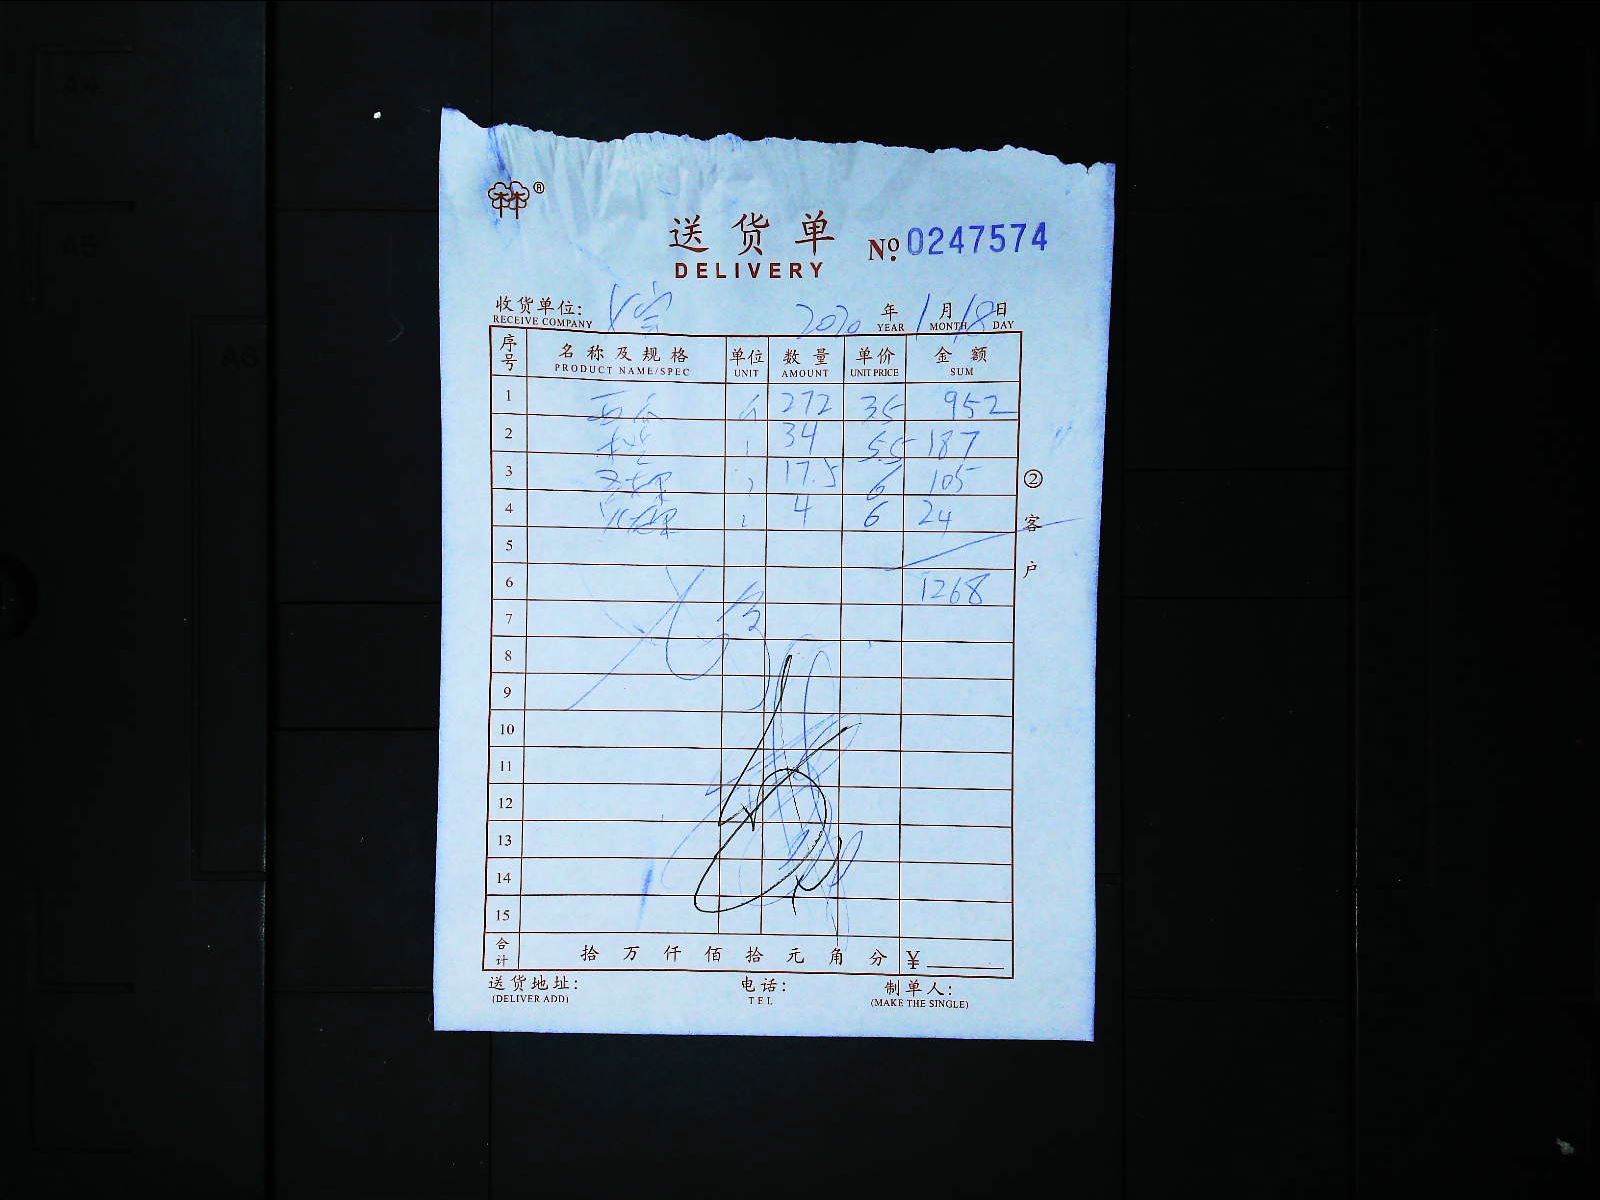 ®
送货单
DELIVERY
No. 0247574
收货单位:
RECEIVE COMPANY
2020 年 1 月 18 日
YEAR MONTH DAY
序号 名称及规格 单位 数量 单价 金额
PRODUCT NAME/SPEC UNIT AMOUNT UNIT PRICE SUM
1 西瓜 272 35 952
2 34 5.5 187
3 17.5 6 105
4 4 6 24
5
6 1268
7
8
9
10
11
12
13
14
15
② 客户
合计 拾 万 仟 佰 拾 元 角 分 ¥
送货地址: 电话: 制单人:
(DELIVER ADD) TEL (MAKE THE SINGLE)
A4
A5
A6